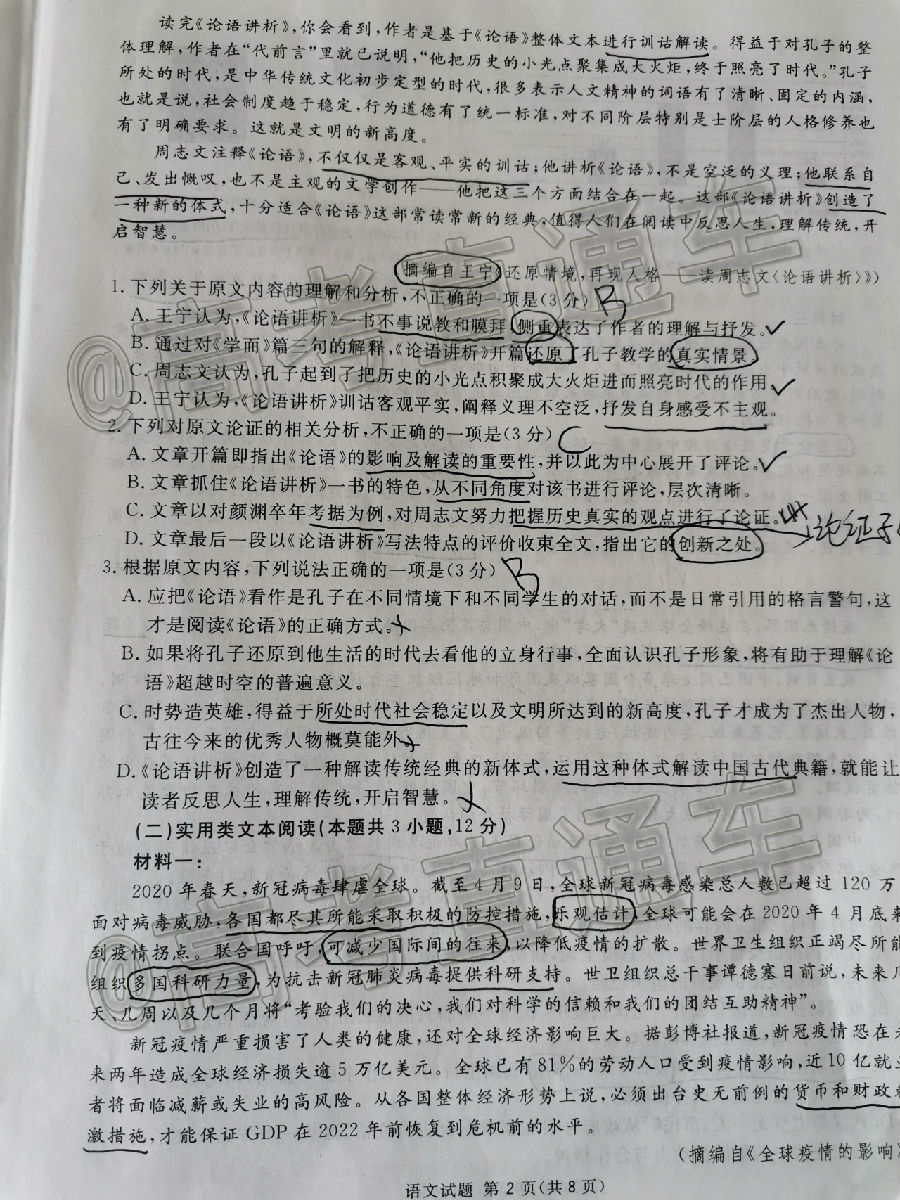 读完《论语讲析》，你会看到，作者是基于《论语》整体文本进行训诂解读。得益于对孔子的整
体理解，作者在“代前言”里就已说明，“他把历史的小光点聚集成大火炬，终于照亮了时代。”孔子
所处的时代，是中华传统文化初步定型的时代，很多表示人文精神的词语有了清晰、固定的内涵，
也就是说，社会制度趋于稳定，行为道德有了统一标准，对不同阶层特别是士阶层的人格修养也
有了明确要求。这就是文明的新高度。
周志文注释《论语》，不仅仅是客观、平实的训诂；他讲析《论语》，不是空泛的义理；他联系自
己、发出慨叹，也不是主观的文学创作——他把这三个方面结合在一起。这部《论语讲析》创造了
一种新的体式，十分适合《论语》这部常读常新的经典，值得人们在阅读中反思人生，理解传统，开
启智慧。
（摘编自王宁《还原情境，再现人格——读周志文〈论语讲析〉》）
1. 下列关于原文内容的理解和分析，不正确的一项是（3分） B
A. 王宁认为，《论语讲析》一书不事说教和膜拜，侧重表达了作者的理解与抒发。
B. 通过对《学而》篇三句的解释，《论语讲析》开篇还原了孔子教学的真实情景
C. 周志文认为，孔子起到了把历史的小光点积聚成大火炬进而照亮时代的作用
D. 王宁认为，《论语讲析》训诂客观平实，阐释义理不空泛，抒发自身感受不主观。
2. 下列对原文论证的相关分析，不正确的一项是（3分） C
A. 文章开篇即指出《论语》的影响及解读的重要性，并以此为中心展开了评论。
B. 文章抓住《论语讲析》一书的特色，从不同角度对该书进行评论，层次清晰。
C. 文章以对颜渊卒年考据为例，对周志文努力把握历史真实的观点进行了论证。
论证
D. 文章最后一段以《论语讲析》写法特点的评价收束全文，指出它的创新之处。
3. 根据原文内容，下列说法正确的一项是（3分） B
A. 应把《论语》看作是孔子在不同情境下和不同学生的对话，而不是日常引用的格言警句，这
才是阅读《论语》的正确方式。
B. 如果将孔子还原到他生活的时代去看他的立身行事，全面认识孔子形象，将有助于理解《论
语》超越时空的普遍意义。
C. 时势造英雄，得益于所处时代社会稳定以及文明所达到的新高度，孔子才成为了杰出人物，
古往今来的优秀人物概莫能外
D. 《论语讲析》创造了一种解读传统经典的新体式，运用这种体式解读中国古代典籍，就能让
读者反思人生，理解传统，开启智慧。
（二）实用类文本阅读（本题共3小题，12分）
材料一：
2020年春天，新冠病毒肆虐全球。截至4月9日，全球新冠病毒感染总人数已超过120万
面对病毒威胁，各国都尽其所能采取积极的防控措施，乐观估计，全球可能会在2020年4月底来
到疫情拐点。联合国呼吁，可减少国际间的往来，以降低疫情的扩散。世界卫生组织正竭尽所能
组织多国科研力量，为抗击新冠肺炎病毒提供科研支持。世卫组织总干事谭德塞日前说，未来几
天、几周以及几个月将“考验我们的决心，我们对科学的信赖和我们的团结互助精神”。
新冠疫情严重损害了人类的健康，还对全球经济影响巨大。据彭博社报道，新冠疫情恐在未
来两年造成全球经济损失逾5万亿美元。全球已有81%的劳动人口受到疫情影响，近10亿就业
者将面临减薪或失业的高风险。从各国整体经济形势上说，必须出台史无前例的货币和财政刺
激措施，才能保证GDP在2022年前恢复到危机前的水平。
（摘编自《全球疫情的影响》
语文试题 第2页（共8页）
@高考直通车
@高考直通车